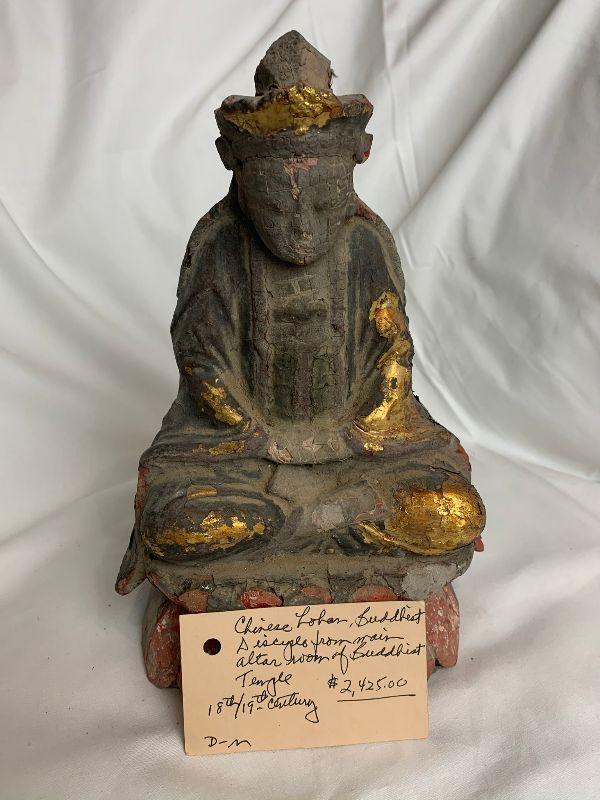 Chinese Lohan, Buddhist
Disciple from main
altar room of Buddhist
Temple $2,425.00
18th/19th century
D-M